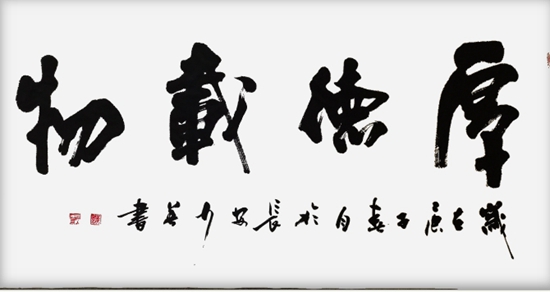 厚德載物
歲在庚子春月於長安 書